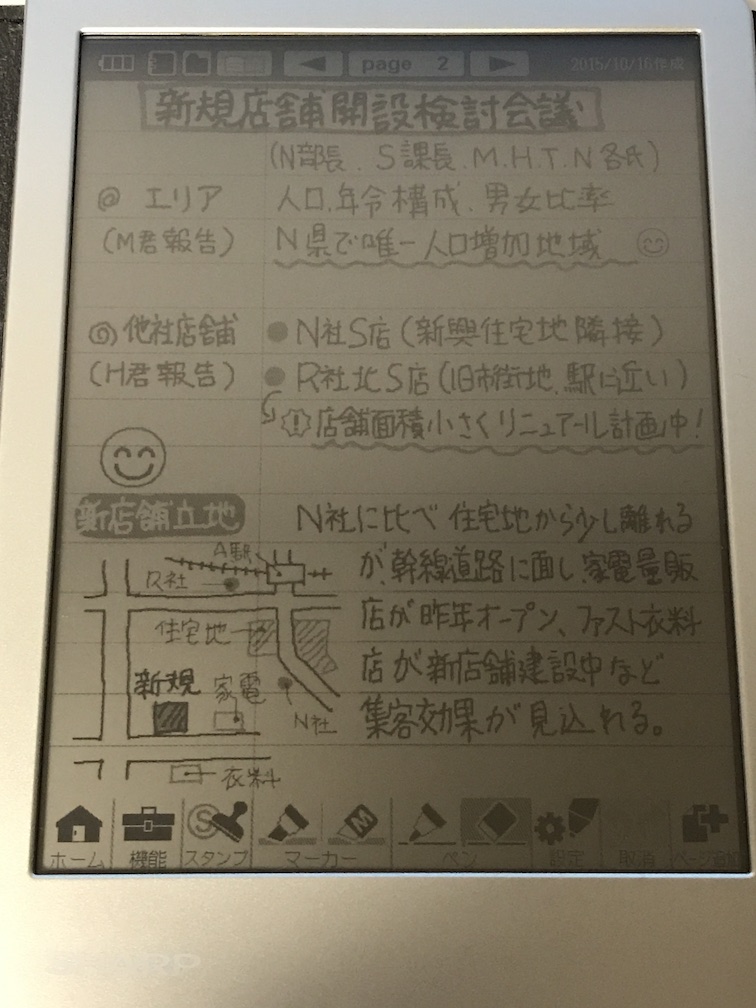 page 2
2015/10/16作成
新規店舗開設検討会議
(N部長、S課長、M.H.T.N各氏)
@ エリア 人口、年令構成、男女比率
(M君報告) N県で唯一人口増加地域
他社店舗 ● N社S店(新興住宅地隣接)
(H君報告) ● R社北S店(旧市街地、駅に近い)
店舗面積小さくリニュアール計画中!
新店舗立地 N社に比べ住宅地から少し離れる
が、幹線道路に面し、家電量販
店が昨年オープン、ファスト衣料
店が新店舗建設中など
集客効果が見込れる。
A駅
R社
住宅地
新規 家電
N社
衣料
ホーム 機能 スタンプ マーカー ペン 設定 取消 ページ追加
SHARP